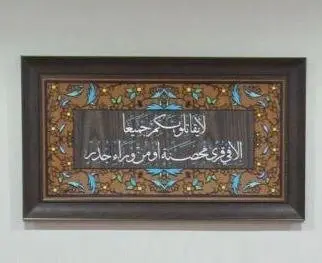 لا يقاتلونكم جميعا
إلا في قرى محصنة أو من وراء جدر